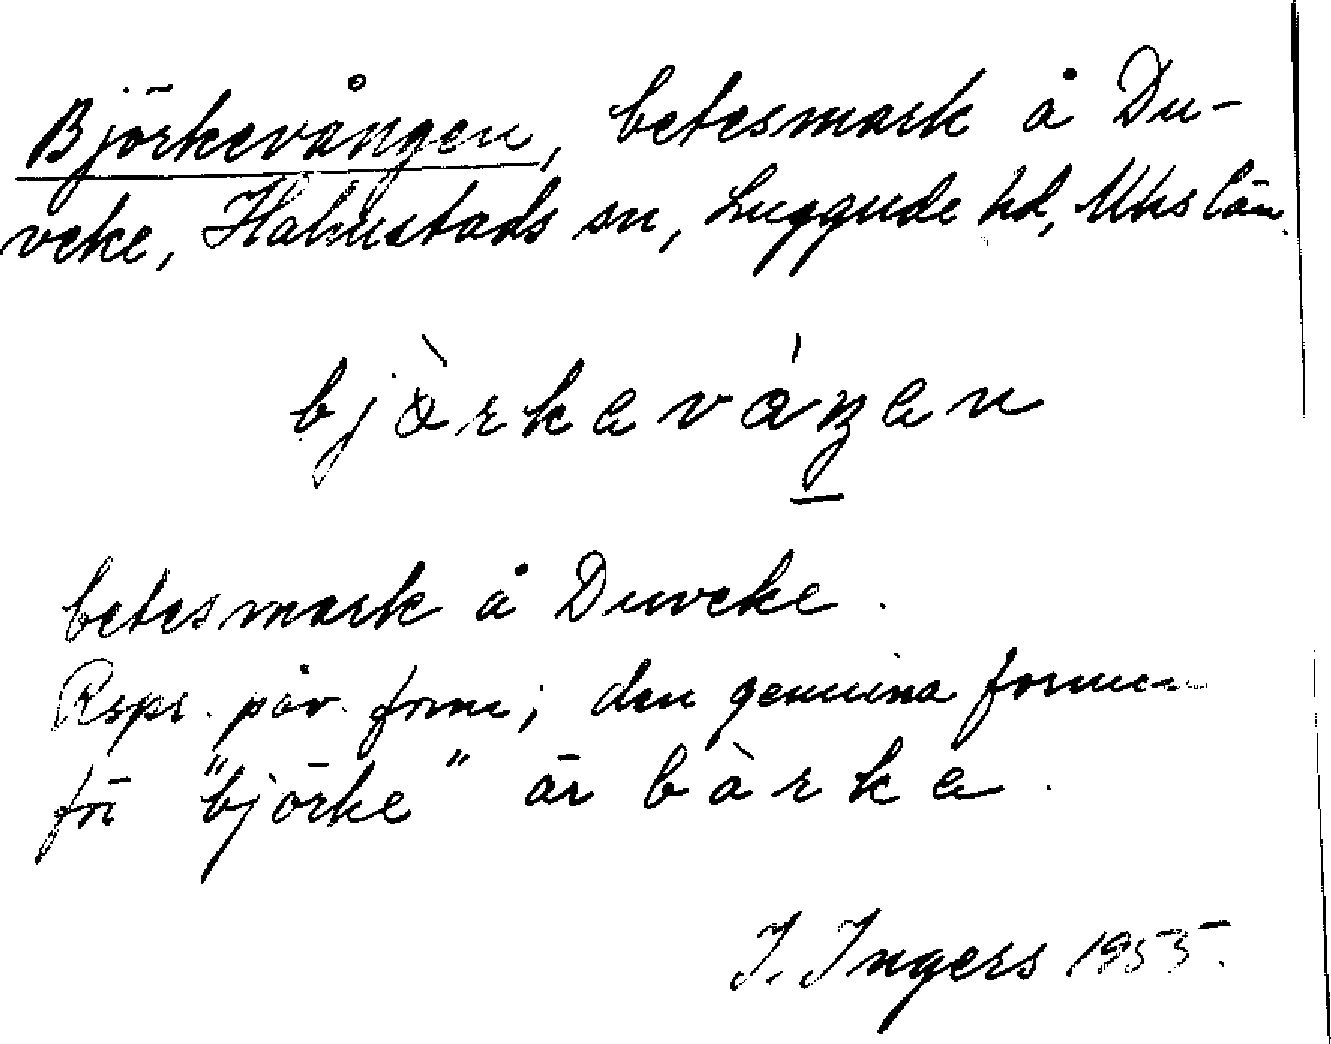 Björkevången, betesmark å Du-
veke, Halmstads sn, Luggude hd, Mhs län.
bjὰrkavάŋen
betesmark å Duveke.
Rspr. påv. form; den genuina formen
för "björke" är bὰrka.
I. Ingers 1955.